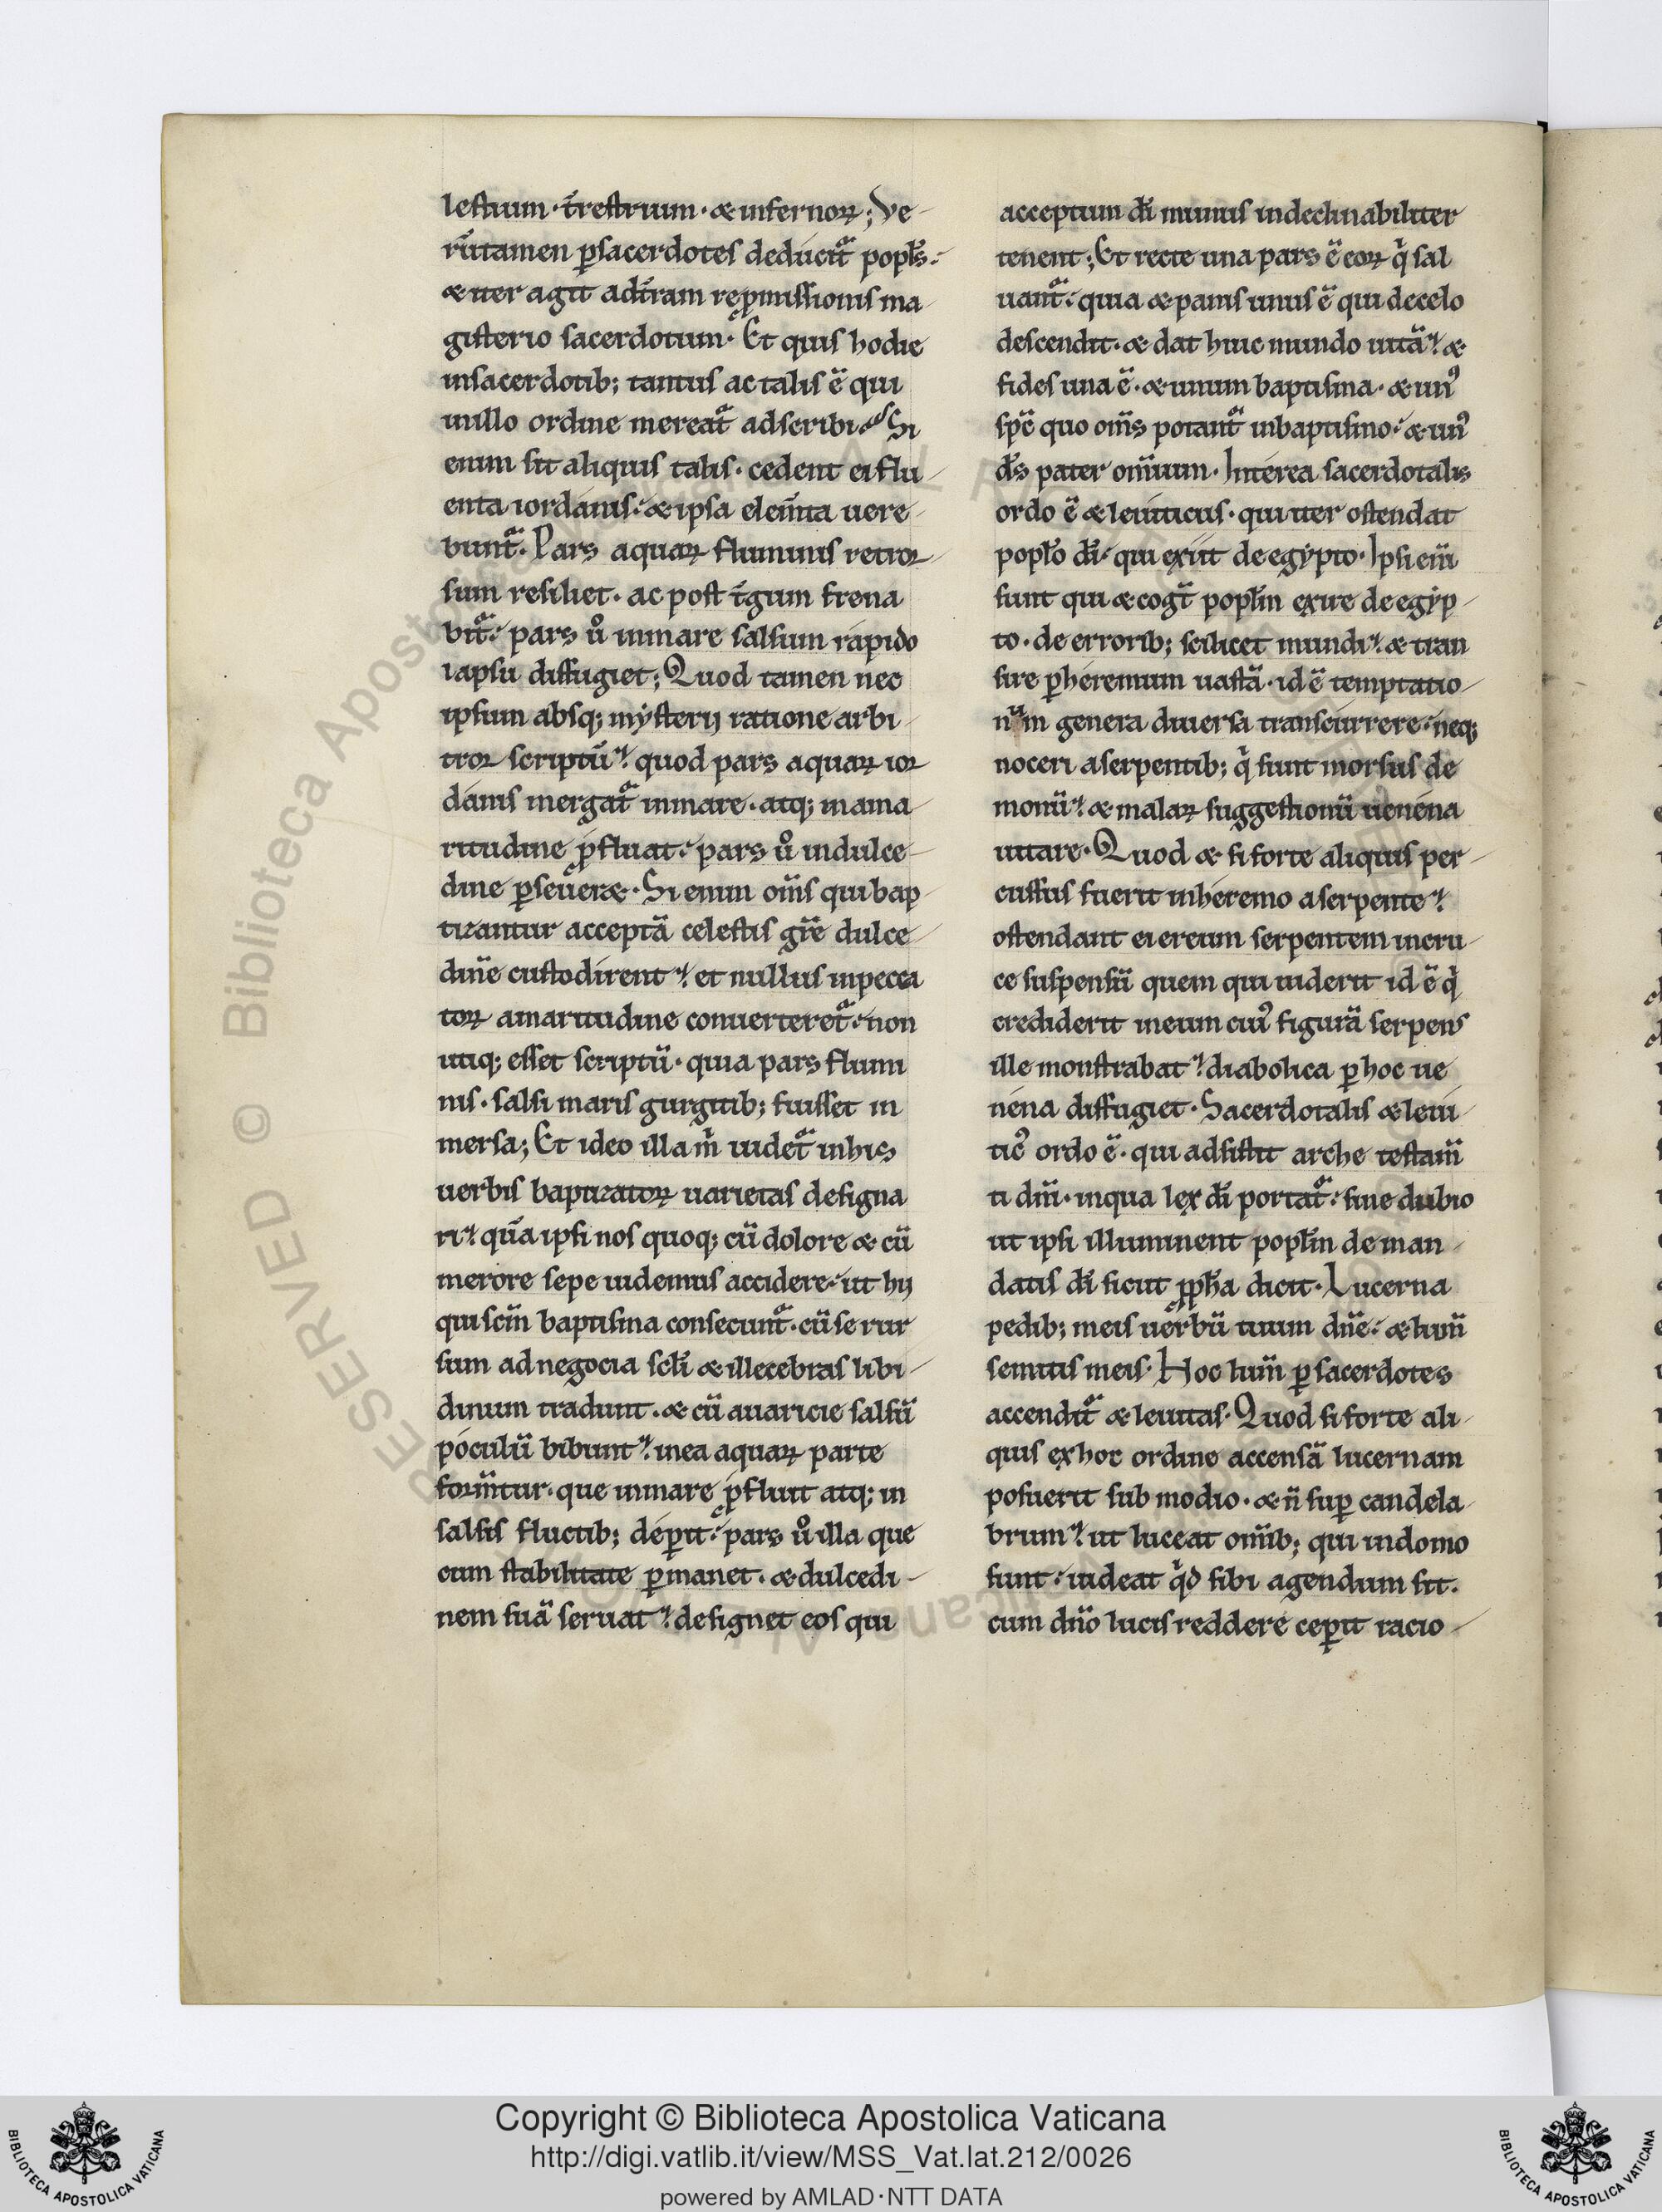 lestium · t̄restrium · & infernoꝝ ; Ve-
rūtamen ꝑsacerdotes deducit᷑ popl̄s ·
& iter agit adt̄ram rep̱missionis ma
gisterio sacerdotum · Et quis hodie
insacerdotib; tantus ac talis ē qui
inillo ordine mereat᷑ adscribi Si
enim sit aliquis talis · cedent ei flu-
enta iordanis · & ipsa elem̄ta uere-
bunt᷑ · Pars aquaꝝ fluminis retror-
sum resiliet · ac post t̄gum frena
bit᷑ · pars ůo inmare salsum rapido
lapsu diffugiet ; Quod tamen nec
ipsum absq; mysterij ratione arbi-
tror scriptū · quod pars aquaꝝ ior
danis mergat᷑ inmare · atq; inama
ritudine ꝓfluat · pars ůo indulce-
dine ꝑseuer& · Si enim om̄s qui bap-
tizantur acceptā celestis grē dulce-
dinē custodirent · et nullus inpecca
toꝝ amaritudine conuerteret᷑ · non
utiq; esset scriptū · quia pars flumi
nis · salsi maris gurgitib; fuisset in
mersa ; Et ideo illa m̊ uidet᷑ inhis
uerbis baptizatoꝝ uarietas designa
ri · quā ipsi nos quoq; cū dolore & cū
merore sepe uidemus accidere · ut hij
qui scm̄ baptisma consecunt᷑ · cū se rur
sum ad negocia scl̄i & illecebras libi-
dinum tradunt · & cū auaricie salsū
poculū bibunt · inea aquaꝝ parte
form̄tur · que inmare ꝓfluit atq; in
salsis fluctib; deꝑit · pars ůo illa que
cum stabilitate ꝑmanet · & dulcedi-
nem suā seruat · designet eos qui
acceptum dī munus indeclinabiliter
tenent ; Et recte una pars ē eoꝝ q̇ sal
uant᷑ · quia & panis unus ē qui decelo
descendit · & dat huic mundo uitā · &
fides una ē · & unum baptisma · & un᷒
sp̄c quo om̄s potant᷑ inbaptismo · & un᷒
d̄s pater om̄ium · Interea sacerdotalis
ordo ē & leuiticus · qui iter ostendat
popl̄o dī · qui exiit de egypto · Ipsi eni̅
sunt qui & cogt̄ popl̄m exire de egyp-
to · de errorib; scilicet mundi · & tran
sire ꝑ heremum uastā · id ē temptatio-
nū genera diuersa transcurrere · neq;
noceri aserpentib; q̇ sunt morsus de
monū · & malaꝝ suggestionū uenena
uitare · Quod & si forte aliquis per-
cussus fuerit inheremo aserpente ·
ostendant ei ereum serpentem incru-
ce suspensū quem qui uiderit id ē q̇
crediderit ineum cui᷒ figurā serpens
ille monstrabat · diabolica ꝑ hoc ue
nena diffugiet · Sacerdotalis & leui-
tic᷒ ordo ē · qui adsistit arche testam̄
ti dn̄i · inqua lex dī portat᷑ · sine dubio
ut ipsi illuminent popl̄m de man-
datis dī sicut ꝓph̄a dicit · Lucerna
pedib; meis uerbū tuum dn̄e · & lum̄
semitis meis · Hoc lum̄ ꝑ sacerdotes
accendit᷑ & leuitas · Quod si forte ali-
quis ex hoc ordine accensā lucernam
posuerit sub modio · & n̄ suꝑ candela-
brum · ut luceat om̄ib; qui indomo
sunt · uideat q̇d sibi agendum sit ·
cum dn̄o lucis reddere ceꝑit racio-
© Biblioteca Apostolica Vaticana
Copyright © Biblioteca Apostolica Vaticana
http://digi.vatlib.it/view/MSS_Vat.lat.212/0026
powered by AMLAD·NTT DATA
BIBLIOTECA APOSTOLICA VATICANA
BIBLIOTECA APOSTOLICA VATICANA